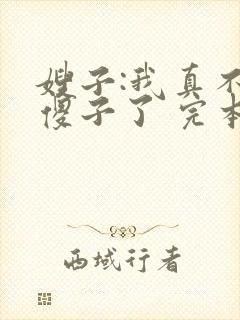 嫂子:我真不
傻子了 完本
西域行者